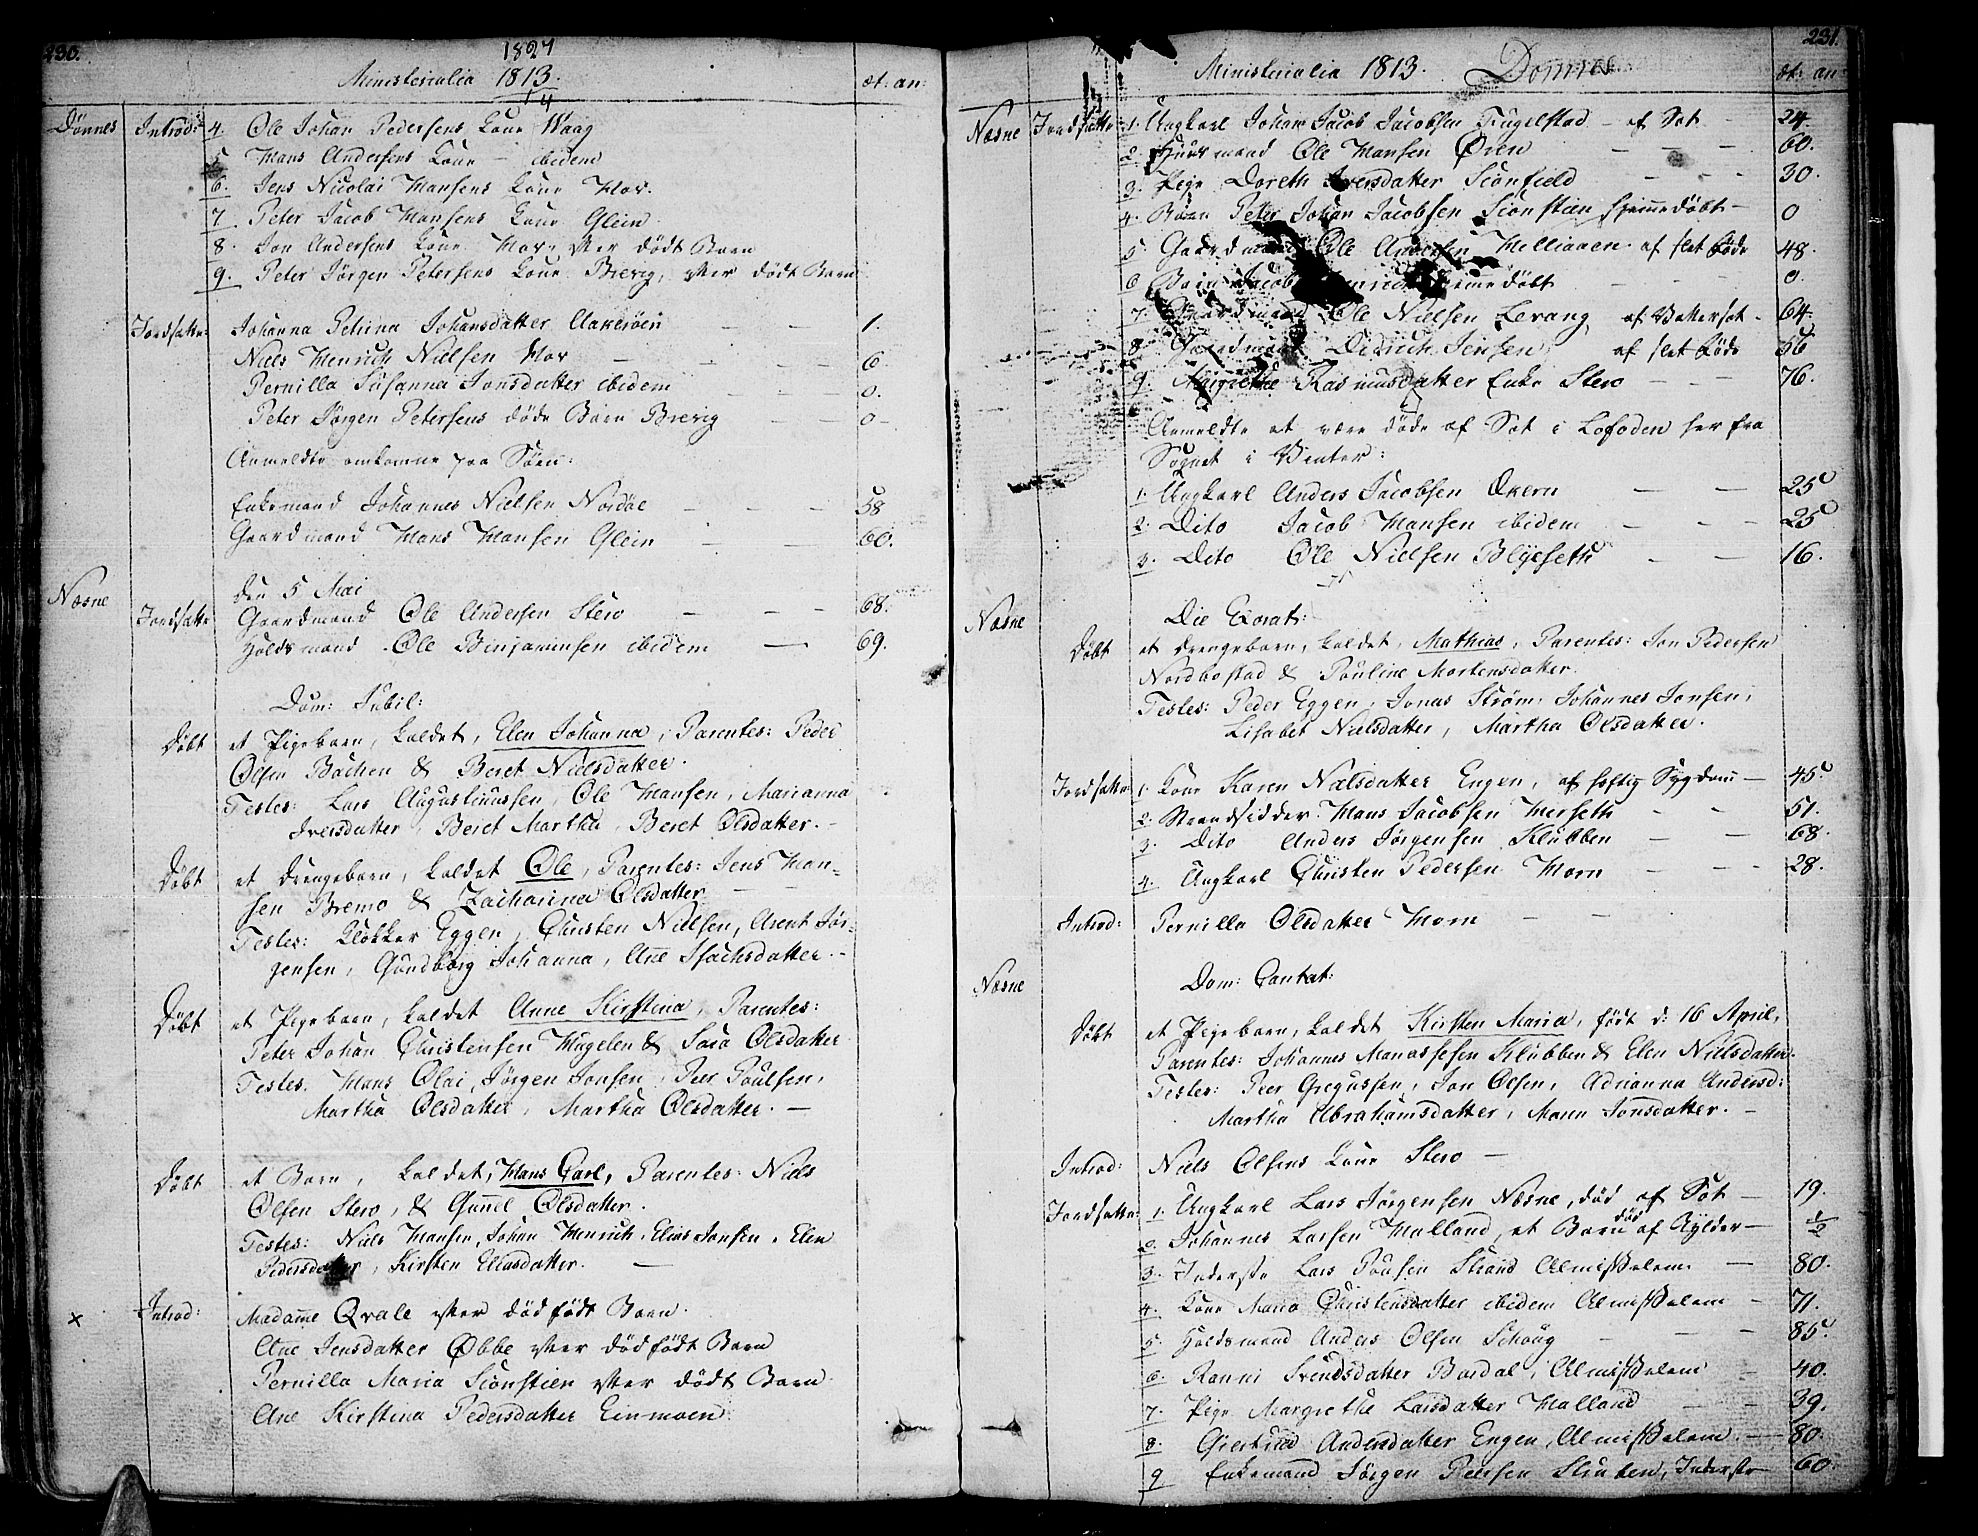 230.
1827
Ministerialia 1813.
14
æt: an:
Dönnes Introd: 4. Ole Johan Pedersens Kone Waag
5 Hans Andersens Kone – ibidem
6. Jens Nicolai Hansens Kone Hov.
7 Peter Jacob Hansens Kone Glein
8. Jon Andersens Kone Hov, efter dödt Barn
9. Peter Jörgen Petersens Kone Brevig, efter dödt Barn
Jordfæstr: Johanna Petrina Johansdatter Aakeröen – – 1.
Niels Henrich Nielsen Hov – – – 6
Pernilla Susanna Jonsdatter ibidem – – – 0.
Peter Jörgen Petersens döde Barn Brevig – – 0
Anmeldte omkomne paa Söen:
Enkemand Johannes Nielsen Nordöe – – – 58
Gaardmand Hans Hansen Glein – – 60.
Næsne
den 5 Mai
Jordfæstr Gaardmand Ole Andersen Stero – – – 68.
Holdsmand Ole Binjaminsen ibidem — 69.
Dom: Jubil:
Döbt et Pigebarn, kaldet, Elen Johanna, Parentes: Peder
Olsen Bachen & Beret Nielsdatter.
Testes: Lars Augustinussen, Ole Hansen, Marianna
Iversdatter, Beret Martha, Beret Olsdatter. –
Döbt et Drengebarn, kaldet Ole, Parentes: Jens Han-
sen Bremo & Zacharina Olsdatter
Testes: Klokker Eggen, Christen Nielsen, Arent Jör-
gensen, Gundborg Johanna, Ane Isachsdatter. –
Döbt et Pigebarn, kaldet Anne Kirstina, Parentes:
Peter Johan Christensen Hugelen & Sara Olsdatter
Testes: Hans Olai, Jörgen Jonsen, Peer Poulsen,
Martha Olsdatter, Martha Olsdatter. –
Döbt et Barn, kaldet, Hans Carl, Parentes: Niels
Olsen Stero, & Gunnel Olsdatter.
Testes: Niels Hansen, Johan Henrich, Elias Jonsen, Elen
Pedersdatter, Kirsten Eliasdatter. —
× Introd: Madamme Qvale efter dödfödt Barn.
Ane Jensdatter Öbbe efter dödfödt Barn
Pernilla Maria Sionstien efter dödt Barn
Ane Kirstina Pedersdatter Einmoen.
231.
Ministerialia 1813. Dönnes
æt: an:
Næsne Jordfæstr: 1. Ungkarl Johan Jacob Jacobsen Fugelstad – af Sot – 24
2. Huusmand Ole Hansen Ören – – – 60.
3. Pige Doreth Iversdatter Sionfield – – – 30.
4. Barn Peter Johan Jacobsen Sionstien hjemmedöbt – 0
5 Gaardmand Ole Andersen af slet Föde 48.
6 Barn Jacob Henrich hjemmedöbt – – 0.
7. Gaardmand Ole Nielsen Levang af Vattersot – 64.
8 Gaardmand Didrich Jensen af slet Föde 56
9. Margrethe Rasmusdatter Enke Stero – – – 76.
Anmeldte at være döde af Sot i Lofoden her fra
Sognet i Vinter:
1. Ungkarl Anders Jacobsen – – 25
2. Dito Jacob Hansen ibidem – – – 25
3. Dito Ole Nielsen – – 16.
Næsne
Die Exorat:
Döbt et Drengebarn, kaldet, Mathias, Parentes: Jon Pedersen
Nordbostad & Pauline Mortensdatter.
Testes: Peder Eggen, Jonas Ström, Johannes Jonsen,
Lisabet Nielsdatter, Martha Olsdatter.
Jordfæstr: 1. Kone Karen Nielsdatter Engen, af heftig Sygdom – 45.
2. Strandsidder Hans Jacobsen Herseth – – 51.
3. Dito Anders Jörgensen Klubben – – 68.
4. Ungkarl Christen Pedersen Horn – – – 28.
Introd: Pernilla Olsdatter Horn – –
Næsne
Dom: Cantat:
Döbt et Pigebarn, kaldet Kirsten Maria, född d: 16 April,
Parentes: Johannes Manassesen Klubben & Elen Nielsdatter.
Testes: Peer Gregussen, Jon Olsen, Adrianna Andersd:
Martha Abrahamsdatter, Maren Jonsdatter. –
Introd: Niels Olsens Kone Stero –
Jordfæstr: 1. Ungkarl Lars Jörgensen Næsne, död af Sot – 19.
2. Johannes Larsen Halland, et Barn död af – 1/2
3. Inderste Lars Poulsen Strand Almisselem – 80.
4. Kone Maria Christensdatter ibidem Almisselem – 71.
5 Holdsmand Anders Olsen – – – 85.
6. Ranni Svendsdatter Bardal, Almisselem – 40.
7. Pige Margrethe Larsdatter Halland – – 39.
8. Giertrud Andersdatter Engen Almisselem. – 80.
9 Enkemand Jörgen Peersen, Inderste – 60.